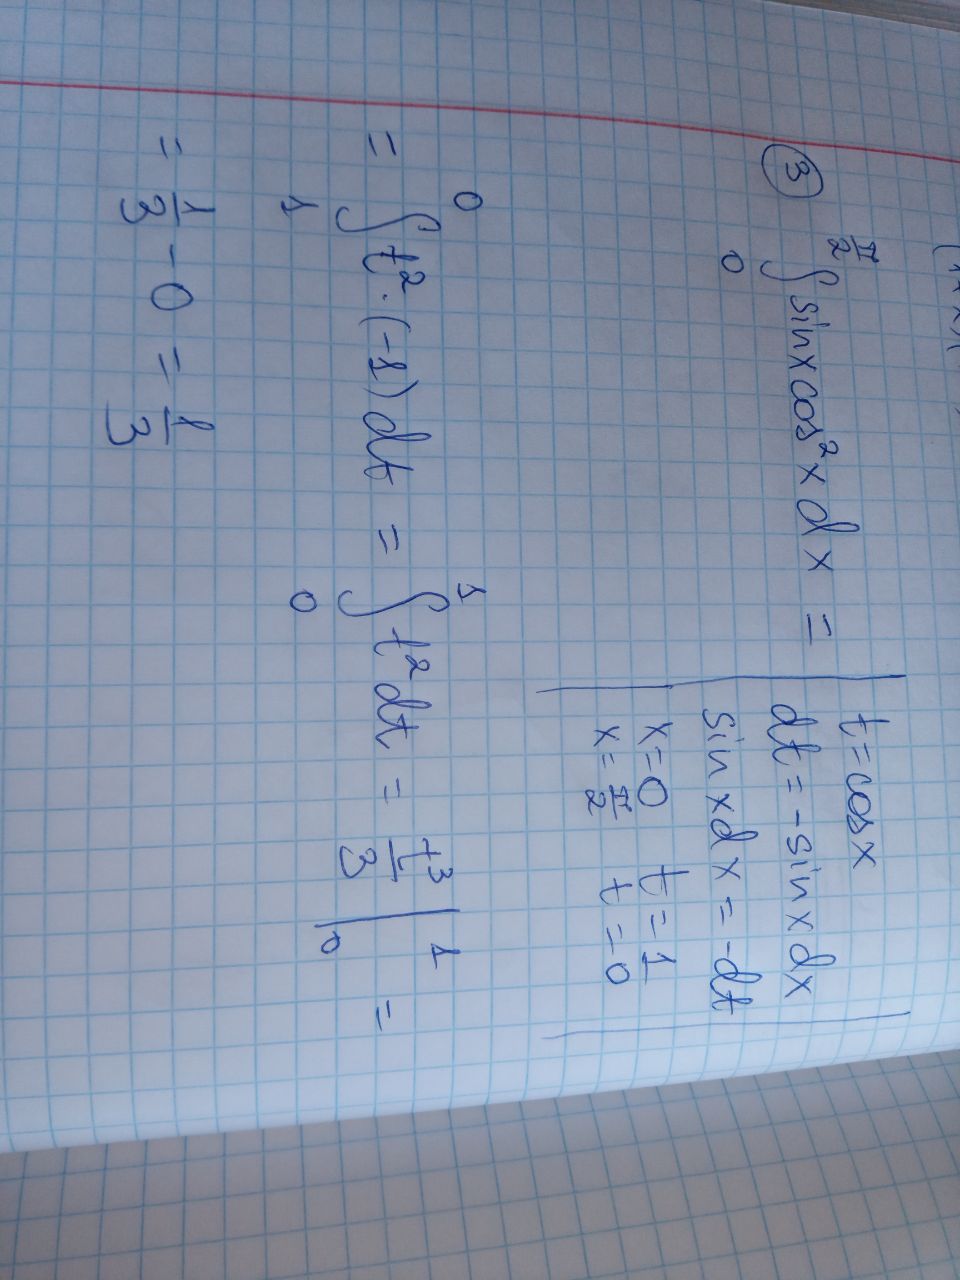 ③ ∫₀^{π/2} sinx cos²x dx = | t = cosx
dt = -sinx dx
sinxdx = -dt
x=0 t=1
x=π/2 t=0 |
= ∫₁⁰ t²·(-1) dt = ∫₀¹ t² dt = t³/3 |₀¹ =
= 1/3 - 0 = 1/3